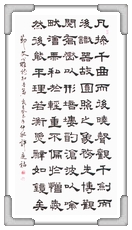 凡操千曲而後曉聲觀千劍而
後識器故圓照之象務先博觀
閱喬岳以形培塿酌滄波以喻
畎澮無私於輕重不偏於憎愛
然後能平理若衡照辭如鏡矣